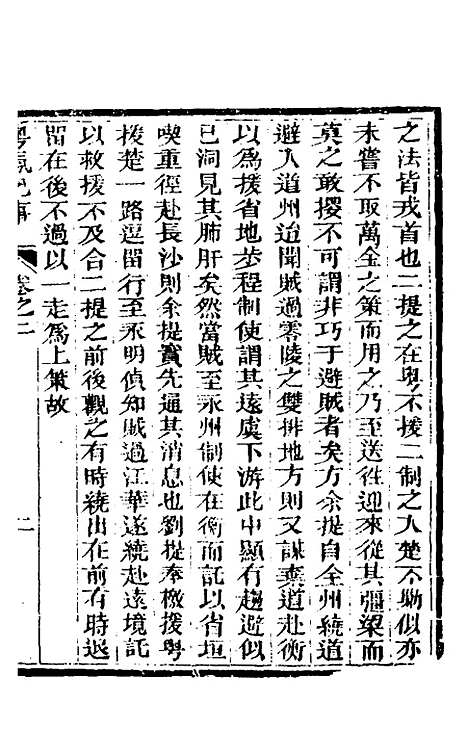 之法皆戎首也二提之在粤不援二制之入楚不勦似亦
未嘗不取萬全之策而用之乃至送往迎來從其彊梁而
莫之敢攖不可謂非巧于避賊者矣方余提自全州繞道
避入道州迨聞賊過零陵之雙排地方則又謀棄道赴衡
以爲援省地步程制使謂其遠虞下游此中顯有趨避似
已洞見其肺肝矣然當賊至永州制使在衡而託以省垣
喫重徑赴長沙則余提實先通其消息也劉提奉檄援粤
援楚一路逗留行至永明偵知賊過江華遂繞赴遠境託
以救援不及合二提之前後觀之有時繞出在前有時退
留在後不過以一走爲上策故
粤氛紀事
卷之二
二